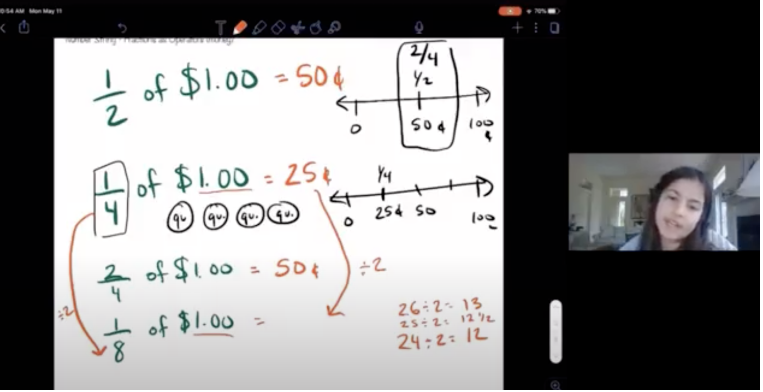 9:54 AM Mon May 11
70%
Number String - Fractions as Operators (money)
1/2 of $1.00 = 50¢
2/4
1/2
0 50¢ 100¢
1/4 of $1.00 = 25¢
qu. qu. qu. qu.
1/4
0 25¢ 50 100
2/4 of $1.00 = 50¢
÷2
÷2
1/8 of $1.00 =
26÷2= 13
25÷2= 12 1/2
24÷2= 12